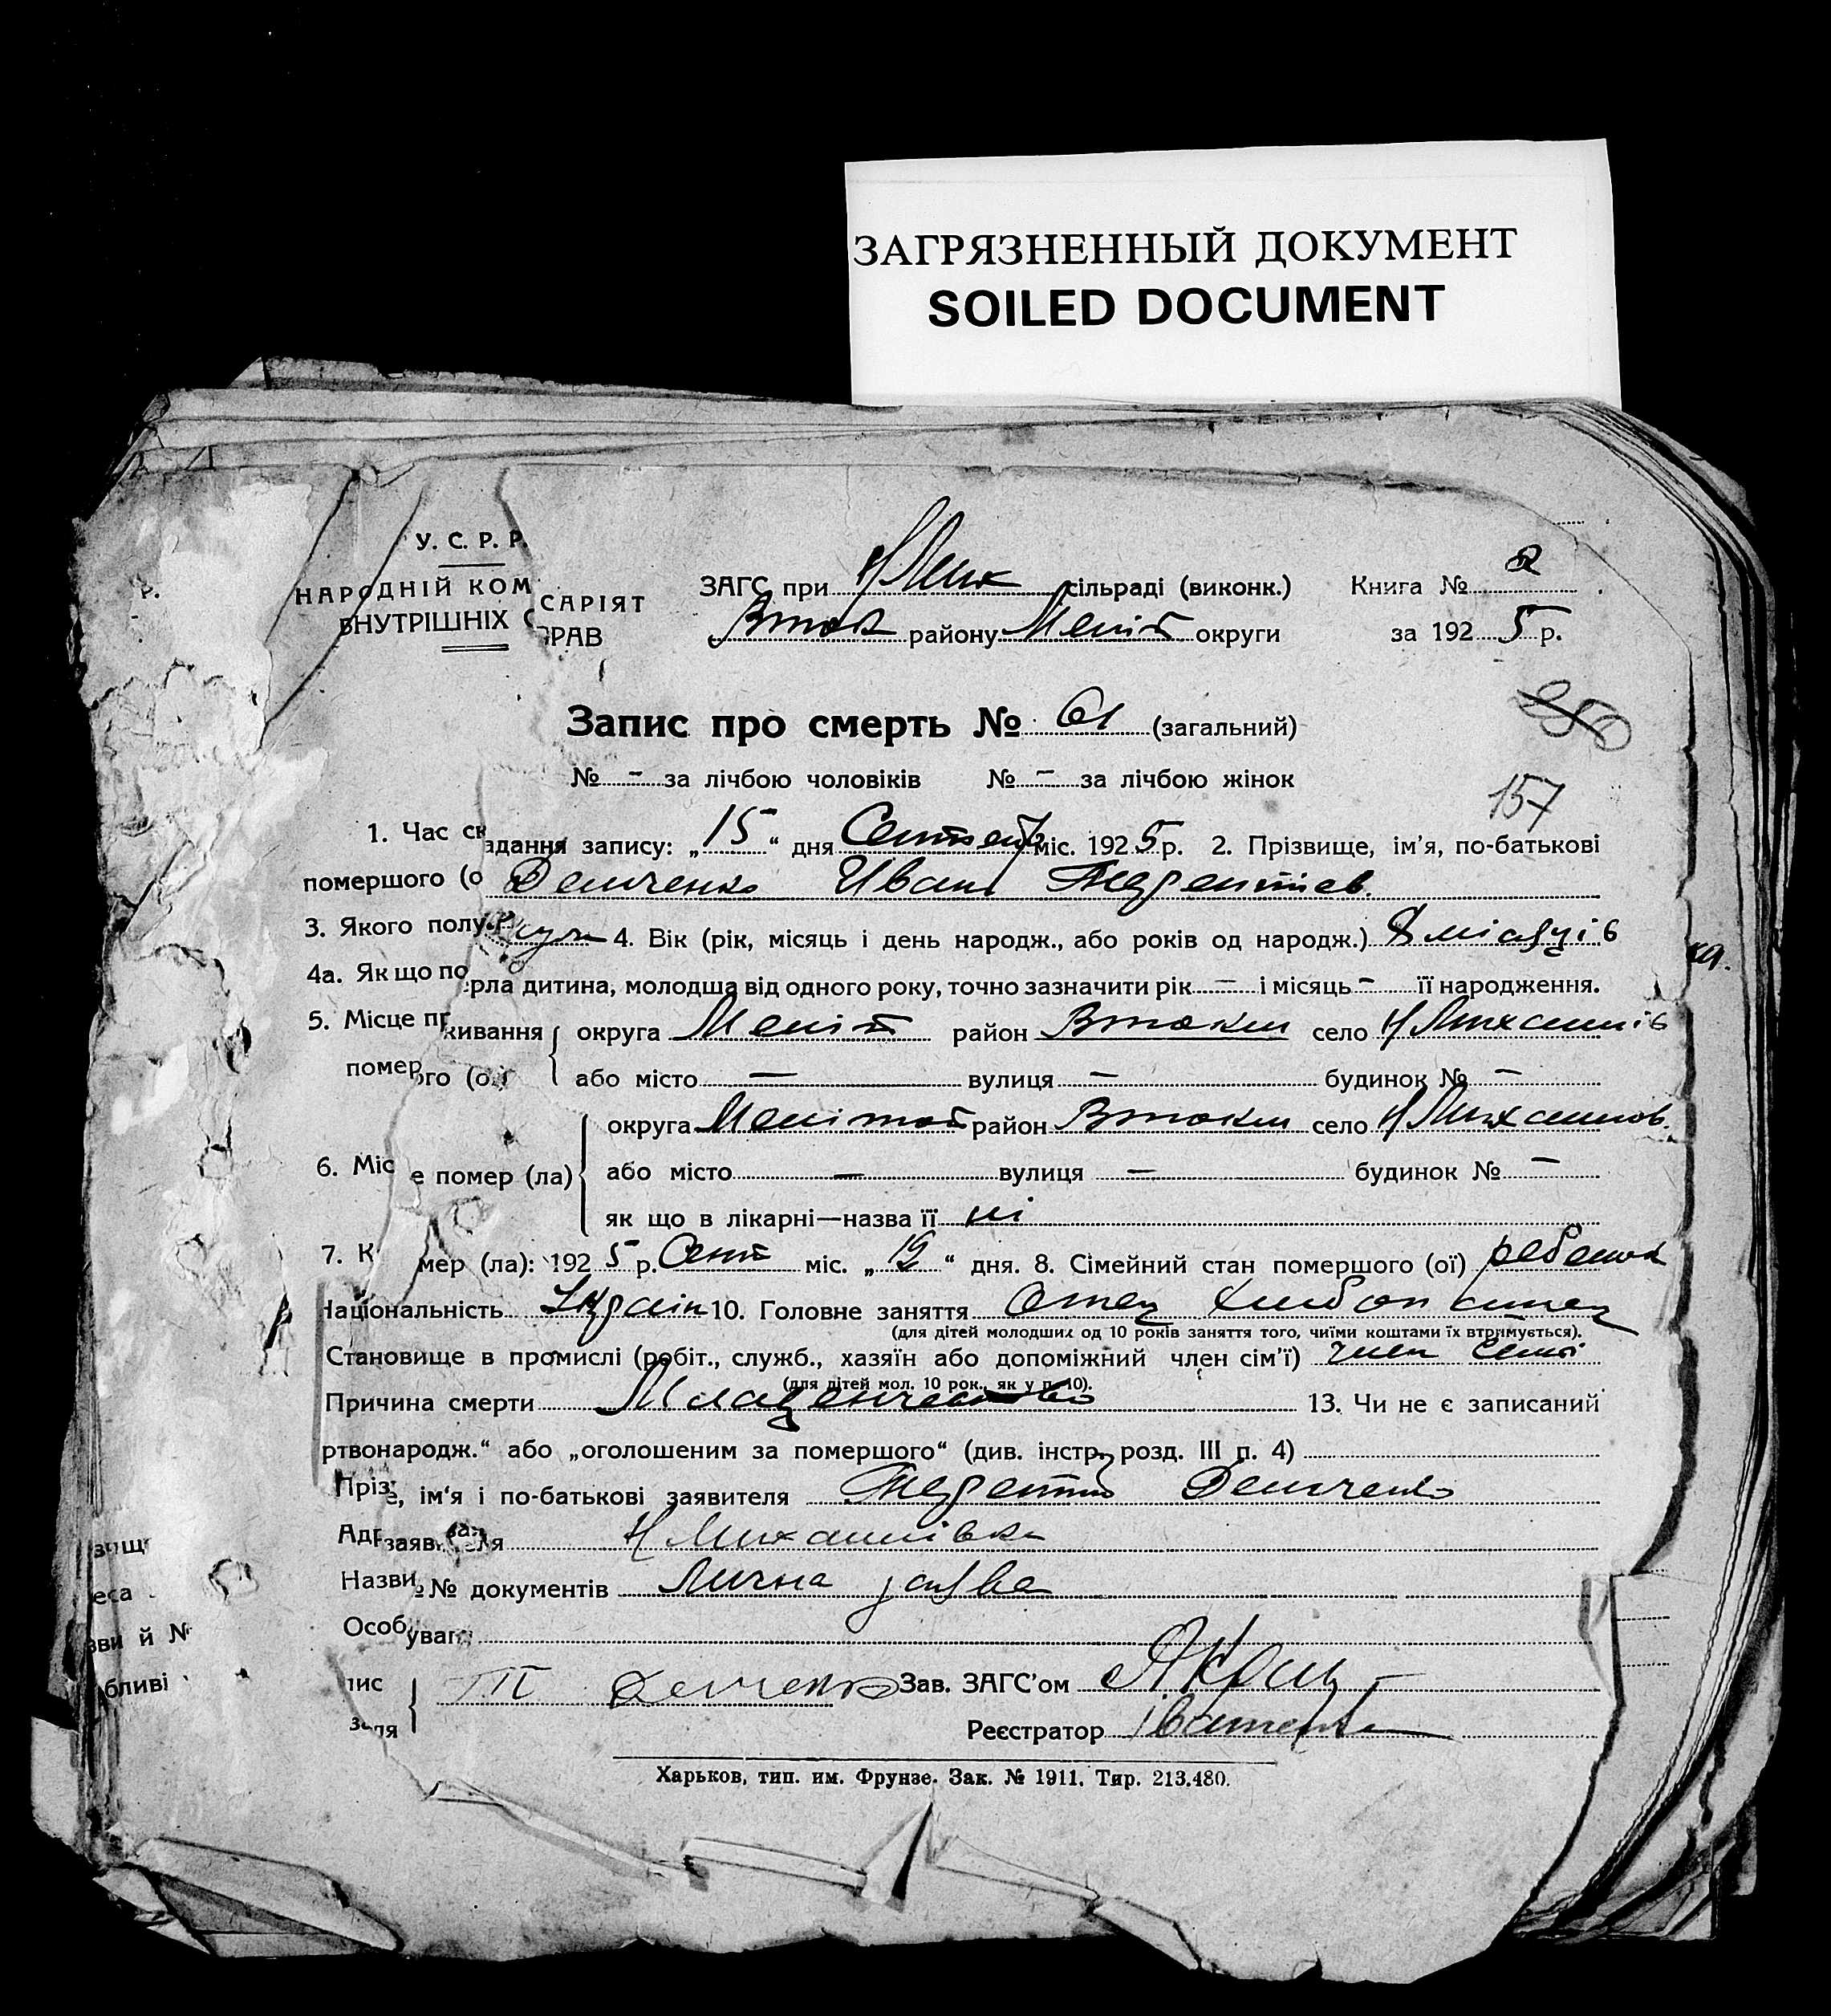 ЗАГРЯЗНЕННЫЙ ДОКУМЕНТ
SOILED DOCUMENT
У. С. Р. Р.
НАРОДНІЙ КОМ САРІЯТ
ВНУТРІШНІХ С ПРАВ
ЗАГС при Н Мих сільраді (виконк.) Книга № 2
Вток району Меліт округи за 192 5 р.
Запис про смерть № 61 (загальний)
№ - за лічбою чоловіків № - за лічбою жінок
157
1. Час ск адання запису: „ 15 “ дня міс. 192 5 р. 2. Прізвище, ім'я, по-батькові
помершого (о Демченко Иван Терентіев.
3. Якого полу 4. Вік (рік, місяць і день народж., або років од народж.) 8 місяців
4а. Як що по рла дитина, молодша від одного року, точно зазначити рік - і місяць - її народження.
5. Місце пр живання округа Меліт район Втокм село Н Михайлів
помер ого (ої або місто - вулиця - будинок № -
округа Мелітоп район Втокм село Н Михайлов.
6. Міс е помер (ла) або місто - вулиця - будинок № -
як що в лікарні—назва її ні
7. К мер (ла): 192 5 р. Сент міс. „ “ дня. 8. Сімейний стан помершого (ої) ребенок
Національність Україн 10. Головне заняття Отец хлибопашец
(для дітей молодших од 10 років заняття того, чиїми коштами їх втримується).
Становище в промислі (робіт., служб., хазяїн або допоміжний член сім'ї) член семі
(для дітей мол. 10 рок., як у п. 10).
Причина смерти Младенчество 13. Чи не є записаний
ртвонародж.“ або „оголошеним за помершого“ (див. інстр. розд. III п. 4)
Пріз е, ім'я і по-батькові заявителя Терентій Демченко
Адр заяв ля Н Михайлівка
Назви № документів Лична заява
Особ уваг
пис Т Демченко Зав. ЗАГС'ом
теля Реєстратор
Харьков, тип. им. Фрунзе. Зак. № 1911. Тир. 213.480.